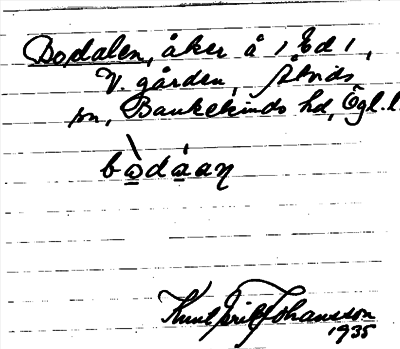 Bodalen, åker å 1 Ed 1,
V. gården, Åtvids
sn, Bankekinds hd, Ögl.l.
bòdáaŋ
Knut Erik Johansson
1935